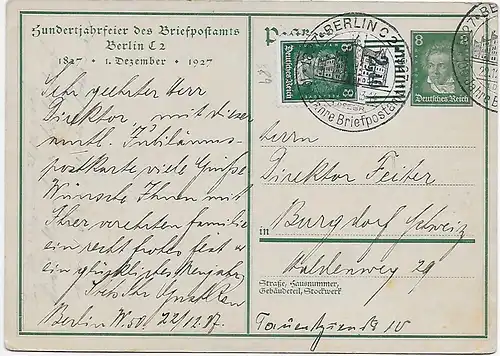 Hundertjahrfeier des Briefpostamts
Berlin C 2
1827 • 1. Dezember • 1927
Sehr geehrter Herr
Direktor, mit dieser
Jubiläums-
postkarte viele Grüße
Wünsche Ihnen mit
Ihrer verehrten Familie
ein recht frohes fest u.
ein glückliches Neujahr
Berlin W. 50. 22/12.27.
BERLIN C 2
Jahre Briefpost
8
Deutsches Reich
8
8
8
Deutsches Reich
Herrn
Direktor Feiter
in Burgdorf Schweiz
29
Straße, Hausnummer,
Gebäudeteil, Stockwerk